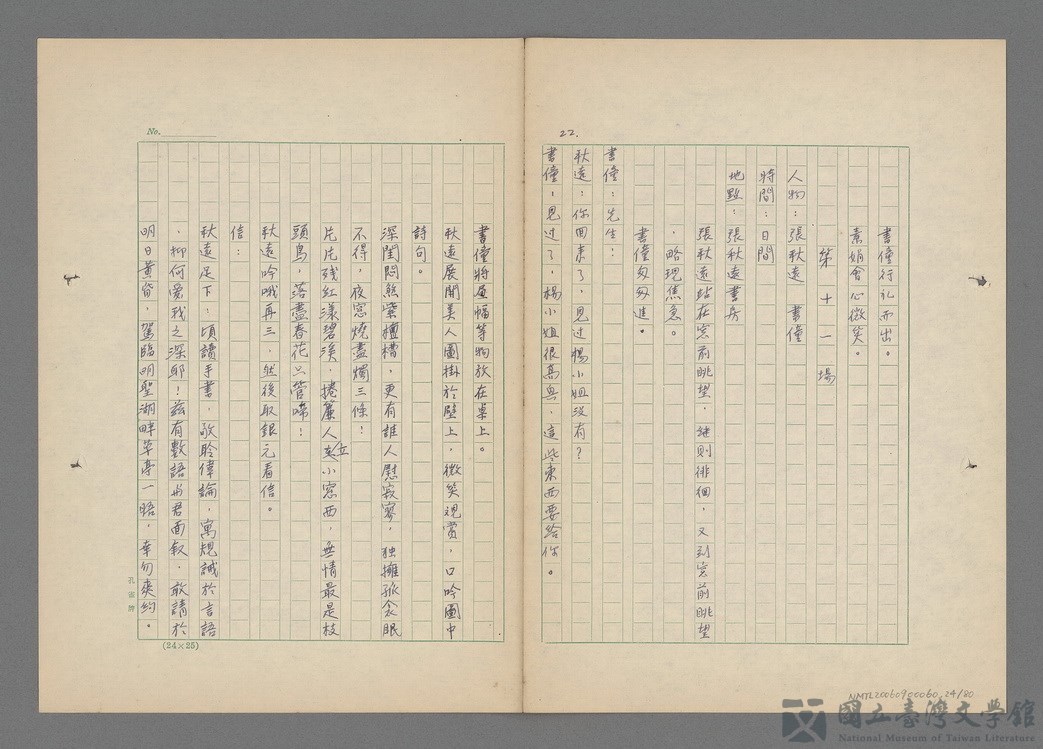 22.
書僮行礼而出。
素娟會心微笑。
第十一場
人物：張秋遠　書僮
時間：日間
地點：張秋遠書房
張秋遠站在窓前眺望，継則徘徊，又到窓前眺望
，略現焦急。
書僮匆匆進。
書僮：先生！
秋遠：你回来了，見过楊小姐沒有？
書僮：見过了，楊小姐很高兴，這些東西要給你。
No.
書僮將画幅等物放在桌上。
秋遠展開美人圖掛於壁上，微笑观賞，口吟圖中
詩句。
深閨悶煞紫檀槽，更有誰人慰寂寥，独擁孤衾眠
不得，夜窓燒盡燭三條！
片片残紅漾碧溪，捲簾人立小窓西，無情最是枝
頭鳥，落盡春花只管啼！
秋遠吟哦再三，然後取銀元看信。
信：
秋遠足下：頃讀手書，敬聆偉論，寓規諴於言語
，抑何愛我之深耶！兹有數語与君面叙，敢請於
明日黃昏，駕臨明聖湖畔草亭一晤，幸勿爽約。
孔雀牌
(24×25)
NMTL20060900060_24/80
國立臺灣文學館
National Museum of Taiwan Literature